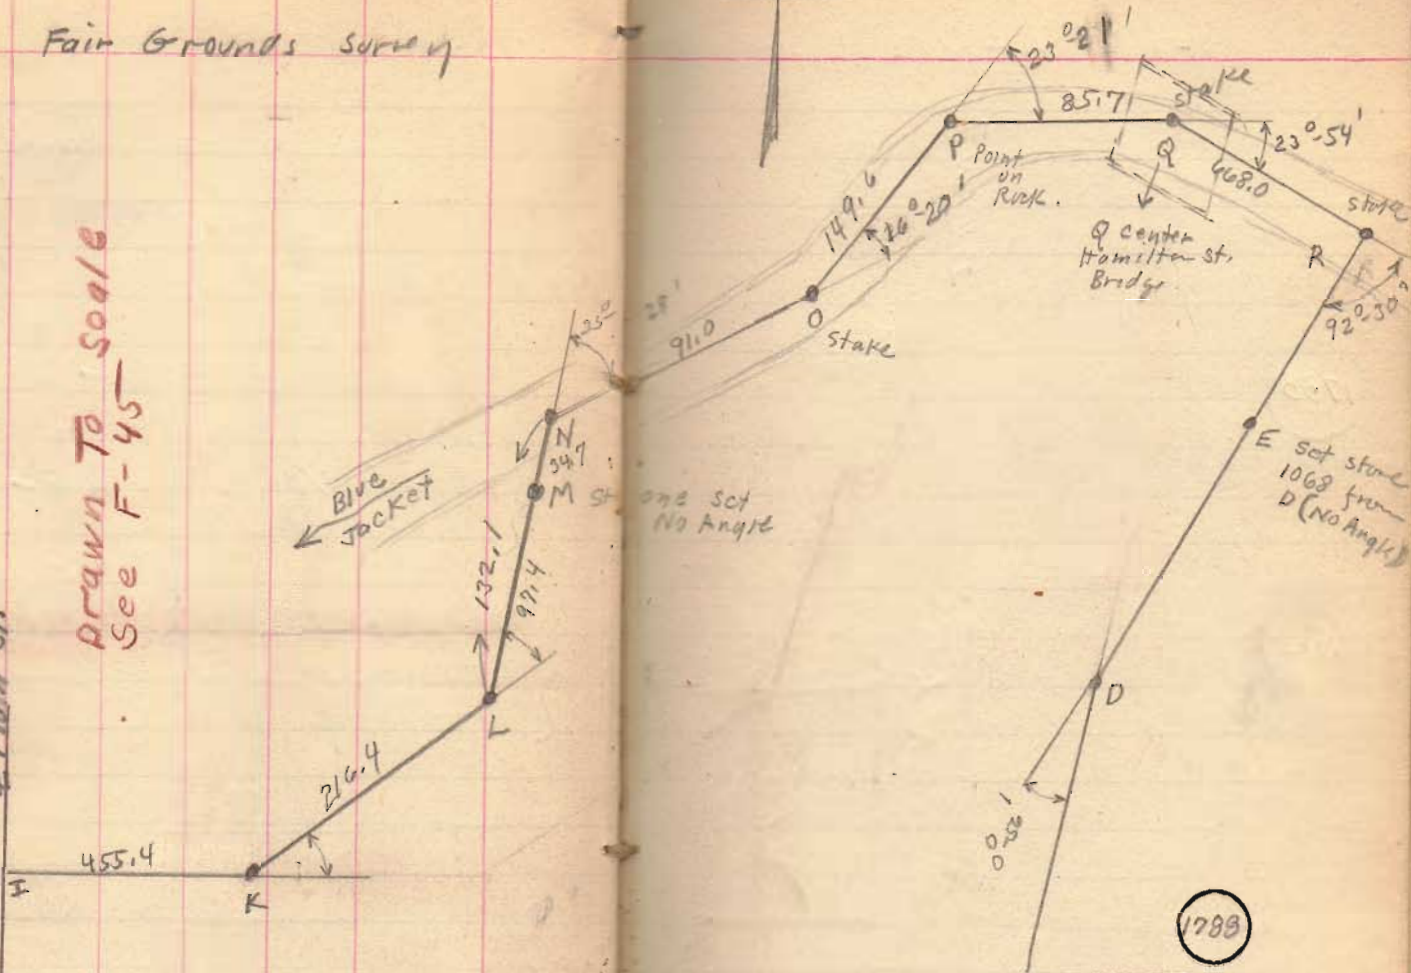 Fair Grounds Survey
Drawn To Scale
See F-45
455.4
I
K
216.4
L
132.1
97.4
M Stone Set
No Angle
34.7
N
Blue
Jacket
35°
28'
91.0
O
Stake
16°-20'
149.6
P
Point
on
Rock.
23°-21'
85.7
Stake
Q
Q center
Hamilton St.
Bridge
23°-54'
668.0
Stake
R
92°-30'
E Set stone
1068 from
D (No Angle)
D
0-56'
1788